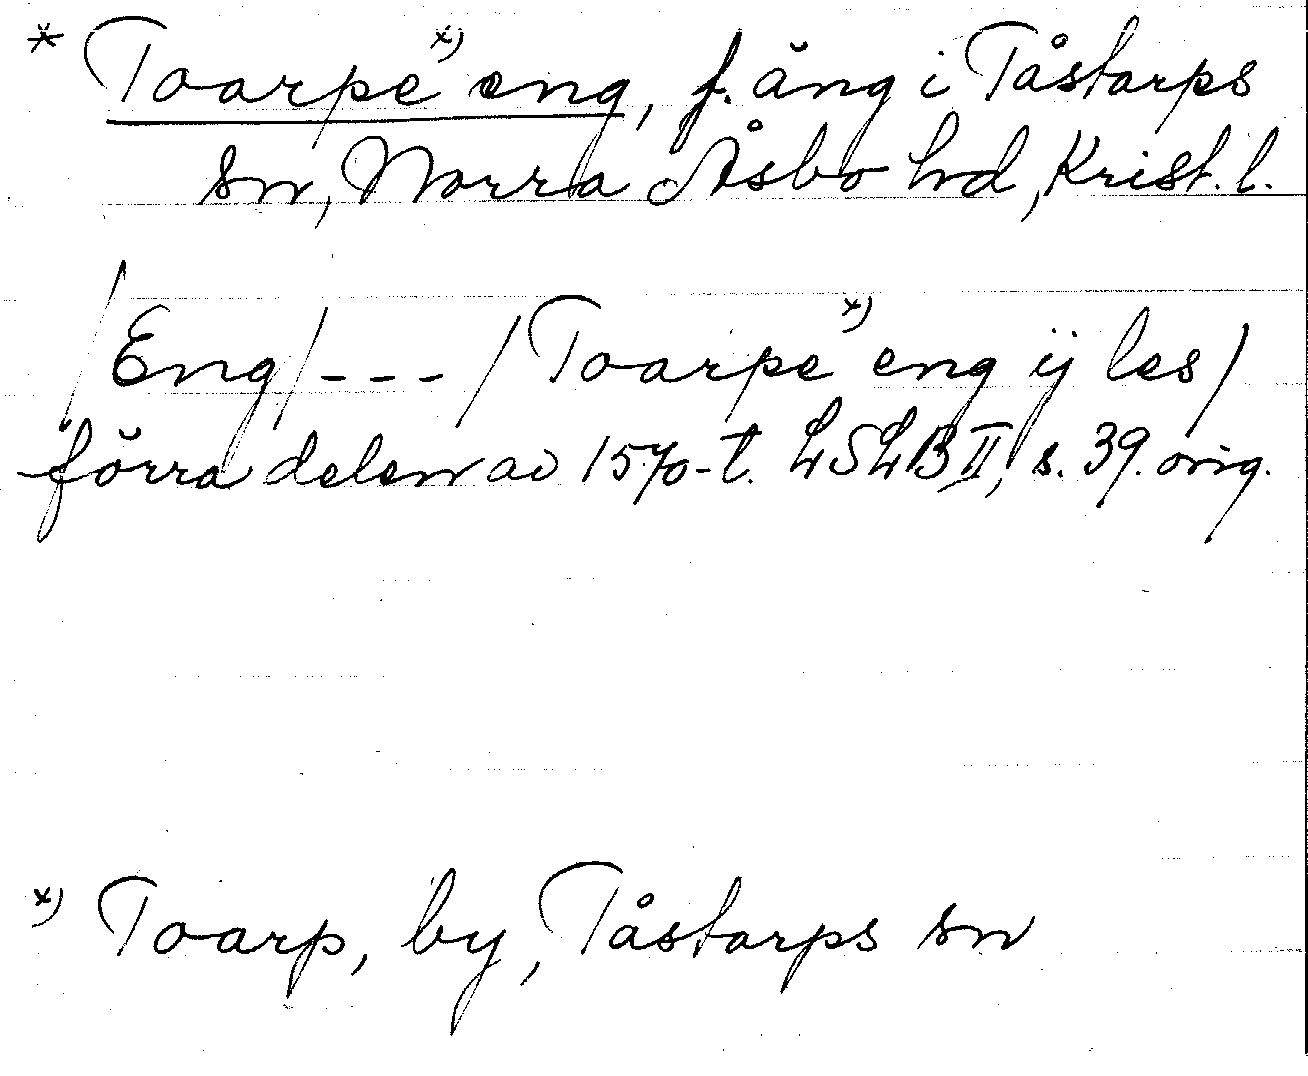 * Toarpe ˣ⁾ eng, f. äng i Tåstarps
sn, Norra Åsbo hd, Krist. l.
/Eng/ - - - /Toarpe ˣ⁾ eng ij les/
förra delen av 1570-t. LSLB II, s. 39. orig.
ˣ⁾ Toarp, by, Tåstarps sn